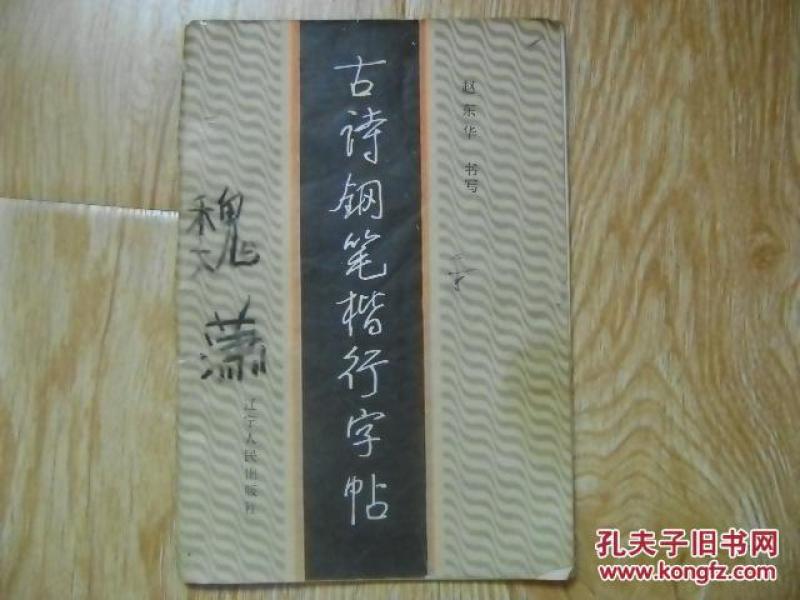 古诗钢笔楷行字帖
赵东华 书写
魏潇
辽宁人民出版社
孔夫子旧书网
www.kongfz.com